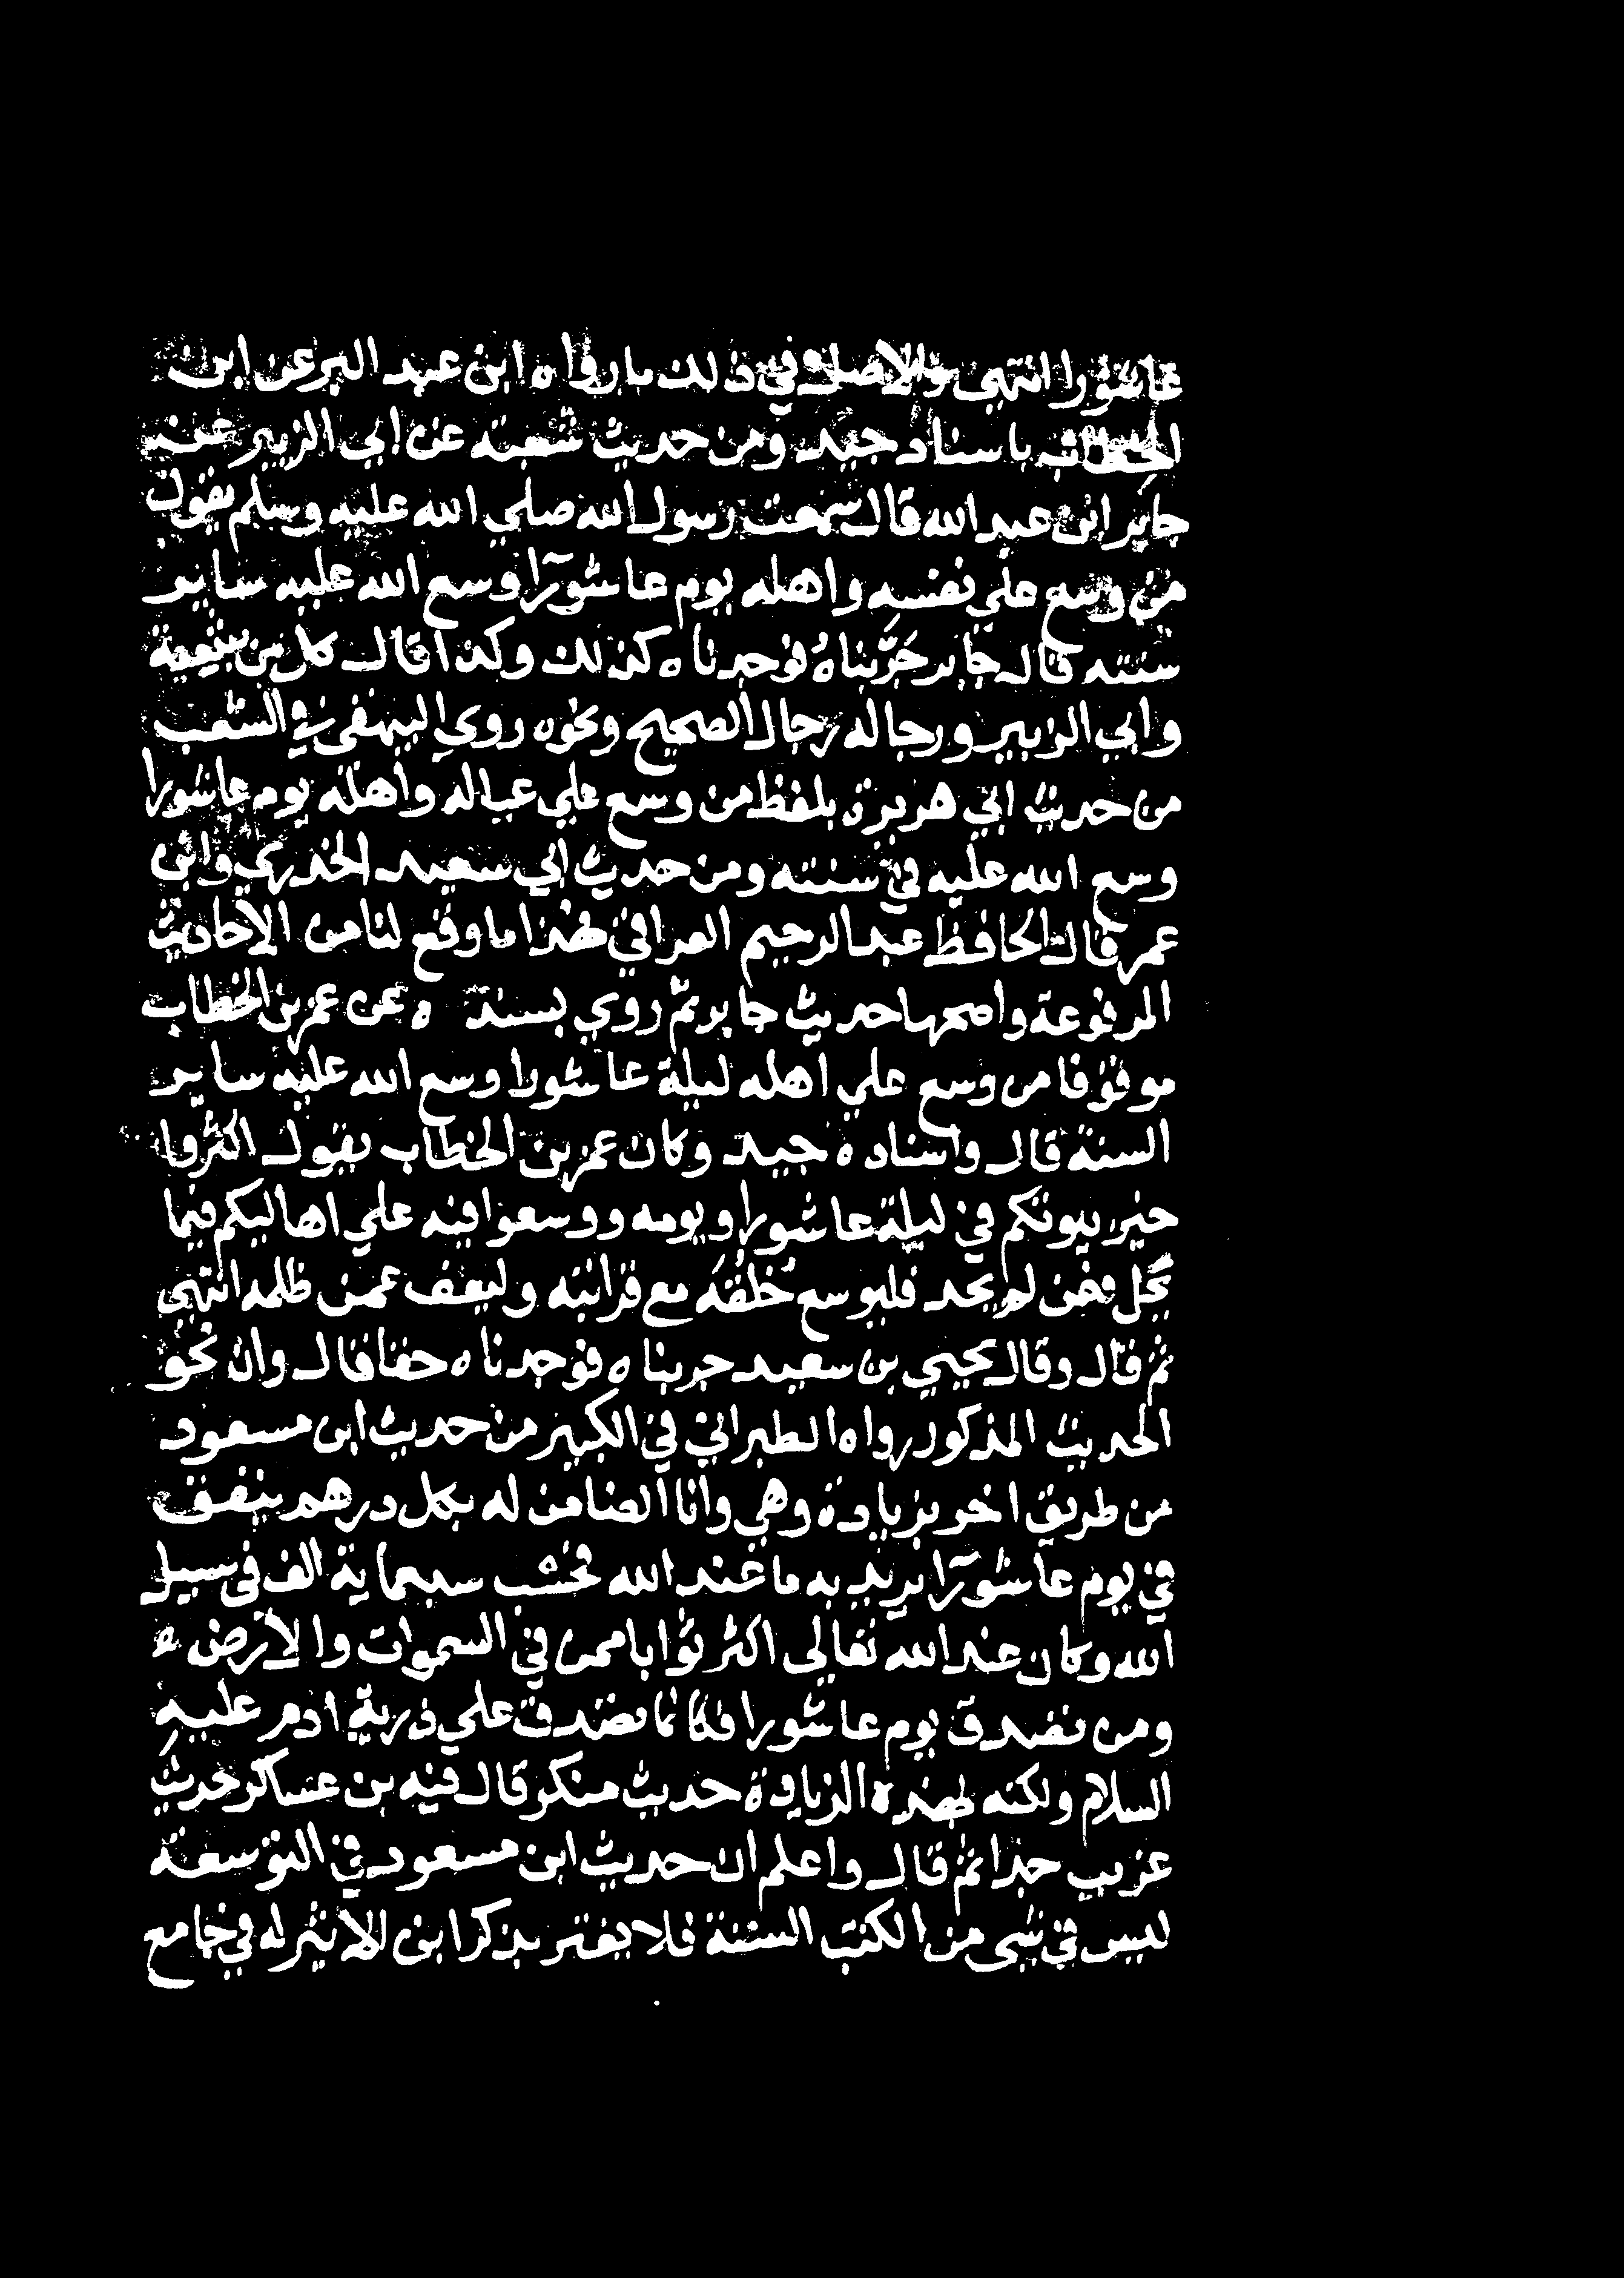 عاشورا انتهي والاصل في ذلك ما رواه ابن عبد البر عن ابن
الخطاب باسناد جيد ومن حديث شعبة عن ابي الزبير عن
جابر ابن عبد الله قال سمعت رسول الله صلي الله عليه وسلم يقول
من وسع علي نفسه واهله يوم عاشورآ وسع الله عليه ساير
سنته قال جابر جَرَّبناهُ فوجدناه كذلك وكذا قال كل من
وابي الزبير ورجاله رجال الصحيح ونحوه روي البيهقي في الشعب
من حديث ابي هريرة بلفظ من وسع علي عياله واهله يوم عاشورا
وسع الله عليه في سنته ومن حديث ابي سعيد الخدري وابن
عمر قال الحافظ عبد الرحيم العراقي فهذا ما وقع لنا من الاحاديث
المرفوعة واصحها حديث جابر ثم روي بسنده عن عمر بن الخطاب
موقوفا من وسع علي اهله ليلة عاشورا وسع الله عليه ساير
السنة قال واسناده جيد وكان عمر بن الخطاب يقول اكثروا
خير بيوتكم في ليلة عاشورا ويومه ووسعوا فيه علي اهاليكم فيما
يحل فمن لم يجد فليوسع خُلقُهَ مع قرابته وليعف عمن ظلمه انتهي
ثم قال وقال يحيي بن سعيد جربناه فوجدناه حقا قال وان نحو
الحديث المذكور رواه الطبراني في الكبير من حديث ابن مسعود
من طريق اخر بزيادة وهي وانا الضامن له بكل درهم ينفق
في يوم عاشورآ يريد به ما عند الله تحسب سبعماية الف في سبيل
الله وكان عند الله تعالي اكثر ثوابا ممن في السموات والارض ه
ومن تصدق يوم عاشورا فكانما تصدق علي ذرية ادم عليه
السلام ولكنه لهذه الزيادة حديث منكر قال فيه بن عساكر حديث
غريب جدا ثم قال واعلم ان حديث ابن مسعود في التوسعة
ليس في شي من الكتب الستة فلا يغتر بذكر ابن الاثير له في جامع